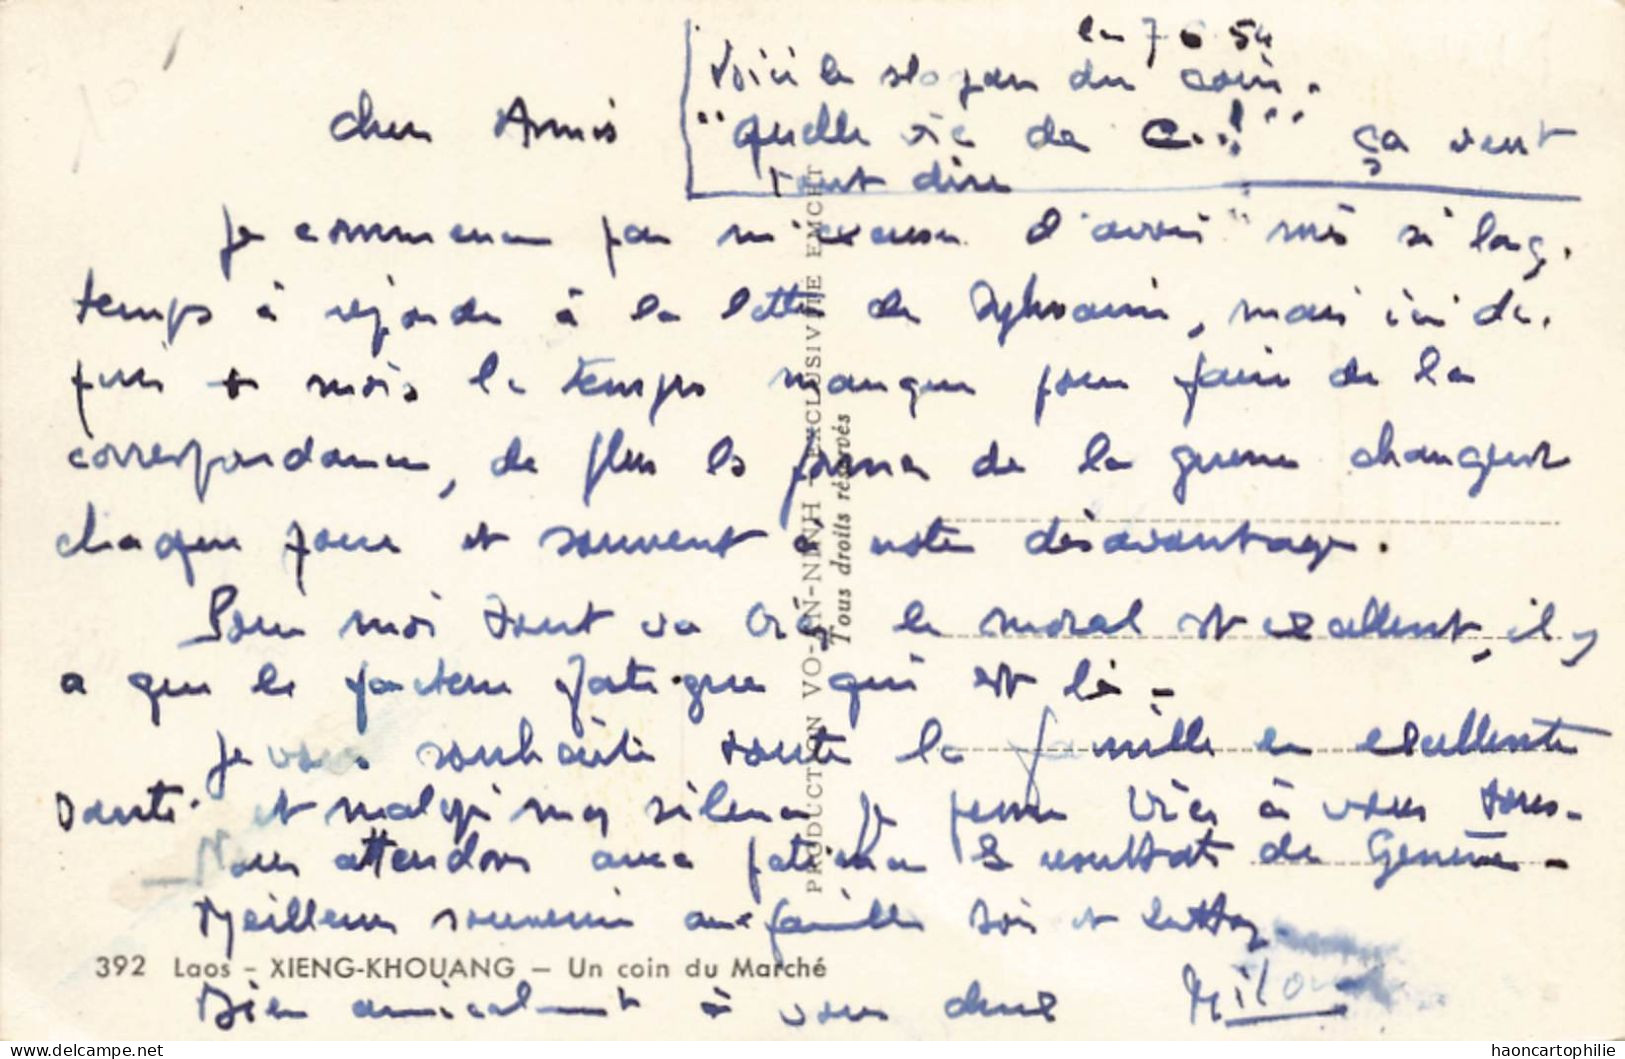 le 7 6 54
Voici le slogan du coin.
"quelle vie de C..!" ça veut
tout dire
Cher Amis
Je commence par m'excuser d'avoir mis si long.
temps à répondre à la lettre de Sylvain, mais ici de.
puis mois le temps manque pour faire de la
correspondance, de plus la forme de la guerre changent
chaque jour et souvent à notre désavantage.
Pour moi tout va très le moral est excellent, il y
a que le facteur fatigue qui est là -
Je vous souhaite toute la famille en excellente
santé et malgré mon silence je pense bien à vous tous.
Nous attendons avec patience le résultat de Genève -
Meilleur souvenir aux familles et
Bien amicalement à vous deux
Milou
392 Laos - XIENG-KHOUANG - Un coin du Marché
PRODUCTION VO-AN-NINH - EXCLUSIVITE EMCHT
Tous droits réservés
haoncartophilie